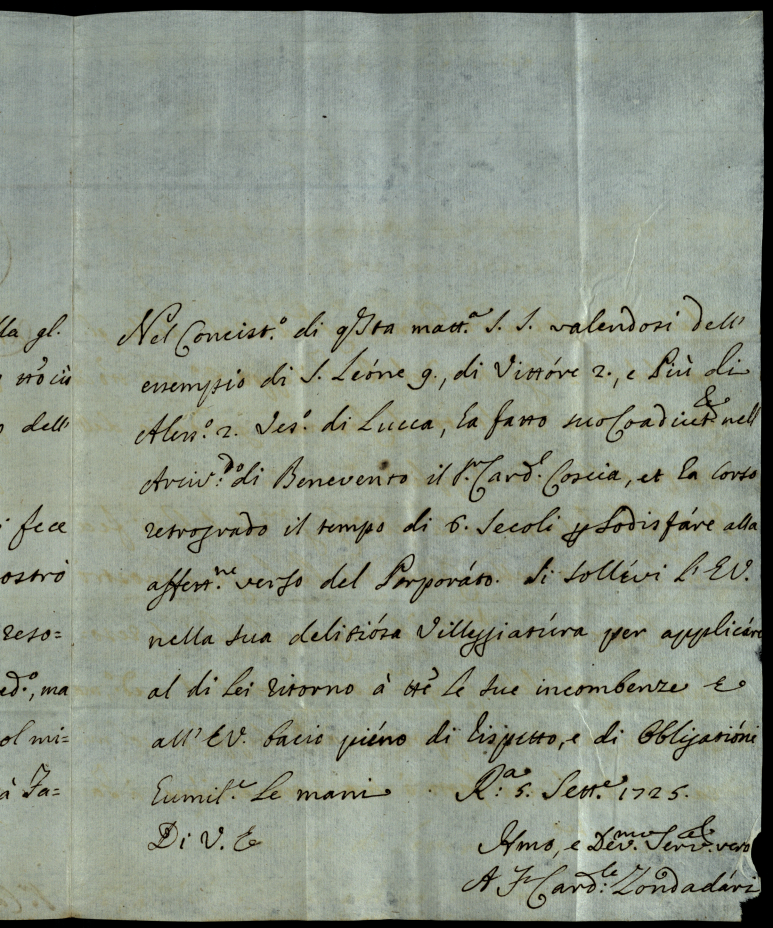 lla gl.
dell'
i fece
ostrò
reso=
ed.º, ma
ol mi=
à Fa=
Nel Concist.º di qsta matt.ª S. S. valendosi dell'
essempio di S. Leóne 9., di Vittóre 2., e Più di
Aless.º 2. Ves.º di Lucca, ha fatto suo Coadiut.re nell
Arciv.do di Benevento il S.r Card.l Coscia, et ha corso
retrogrado il tempo di 6. Secoli p Sodisfáre alla
affett.ne verso del Porporáto. Si sollévi l'E V.
nella sua delitiósa Villeggiatúra per applicáre
al di Lei ritorno à tte le sue incombenze e
all' E V. bacio piéno di rispetto, e di Obbligatióni
humil.e Le mani R.ª 5. Sett.e 1725.
Di V. E
Hmo, e Dev.mo Serv.re vero
A F Card.le Zondadári